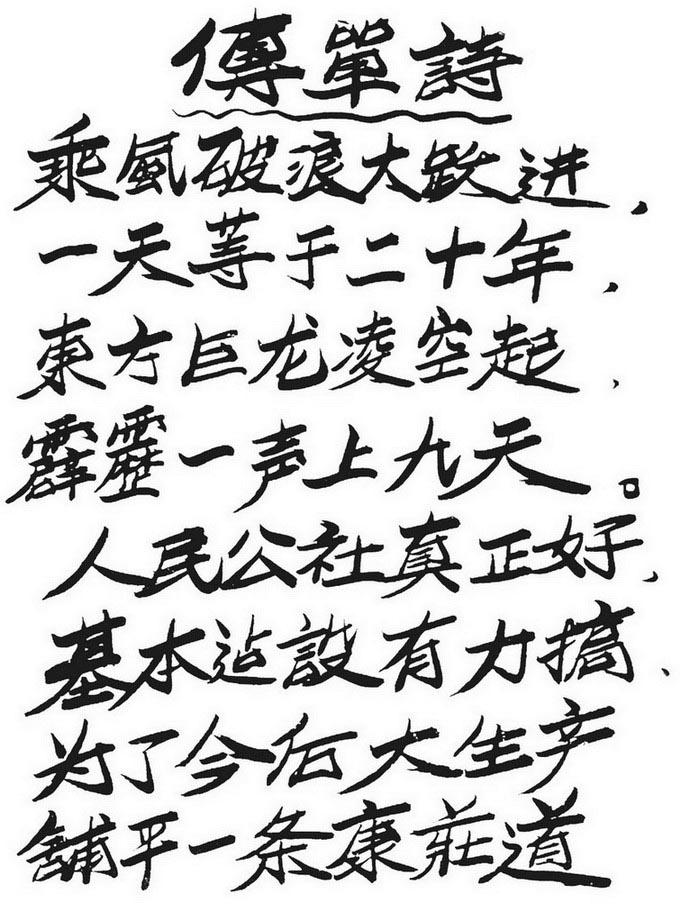 傳單詩
乘風破浪大跃进，
一天等于二十年，
東方巨龙凌空起，
霹靂一声上九天。
人民公社真正好，
基本迠設有力搞、
为了今后大生产
舖平一条康莊道